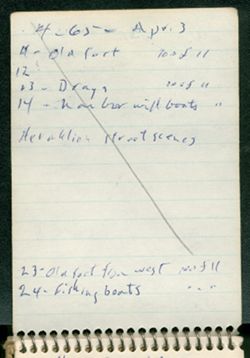 4-65- Apr. 3
11- Old fort 100 f 11
12
13- Drays 100 f 11
14- harbor with boats "
Heraklion street scenes
23- Old fort from west 100 f 11
24- Fishing boats " " "